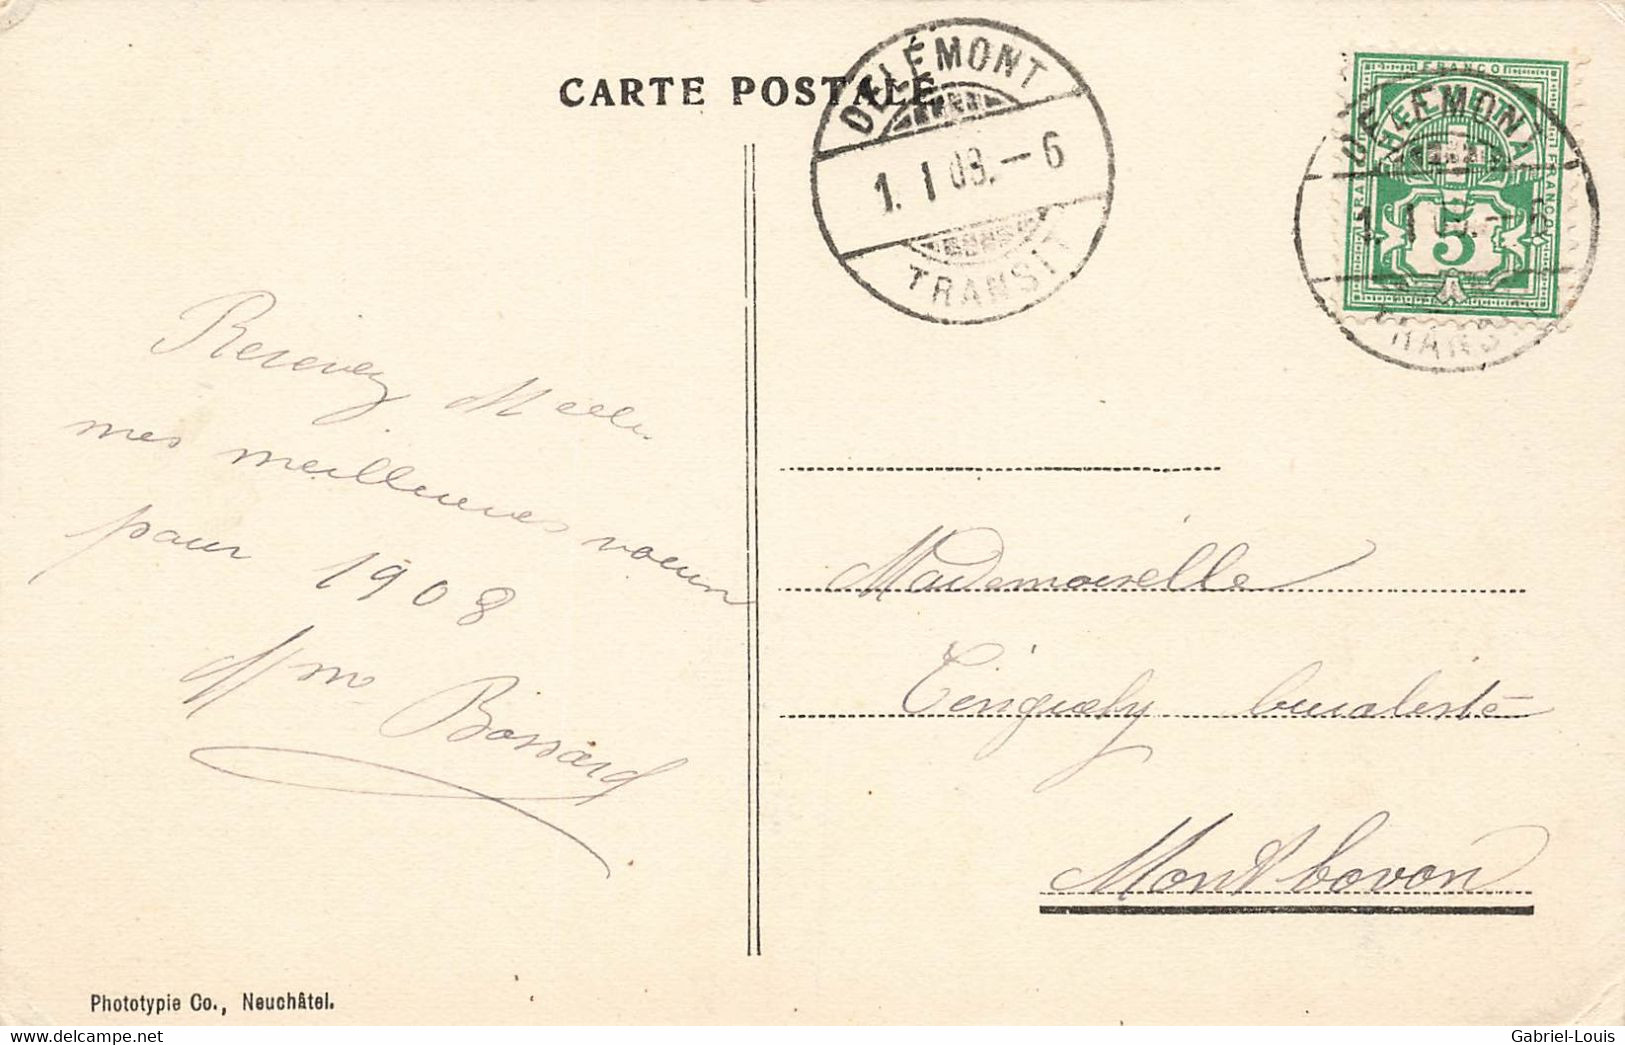 CARTE POSTALE.
DELÉMONT
1. I 08. – 6
TRANSIT
FRANCO
HELVETIA
FRANCO
FRANCO
5
DELÉMONT
1. I 08. – 6
TRANSIT
Recevez Melle
mes meilleures voeux
pour 1908
Mme Bossard
Mademoiselle
Tinguely
Montbovon
Phototypie Co., Neuchâtel.
www.delcampe.net
Gabriel-Louis